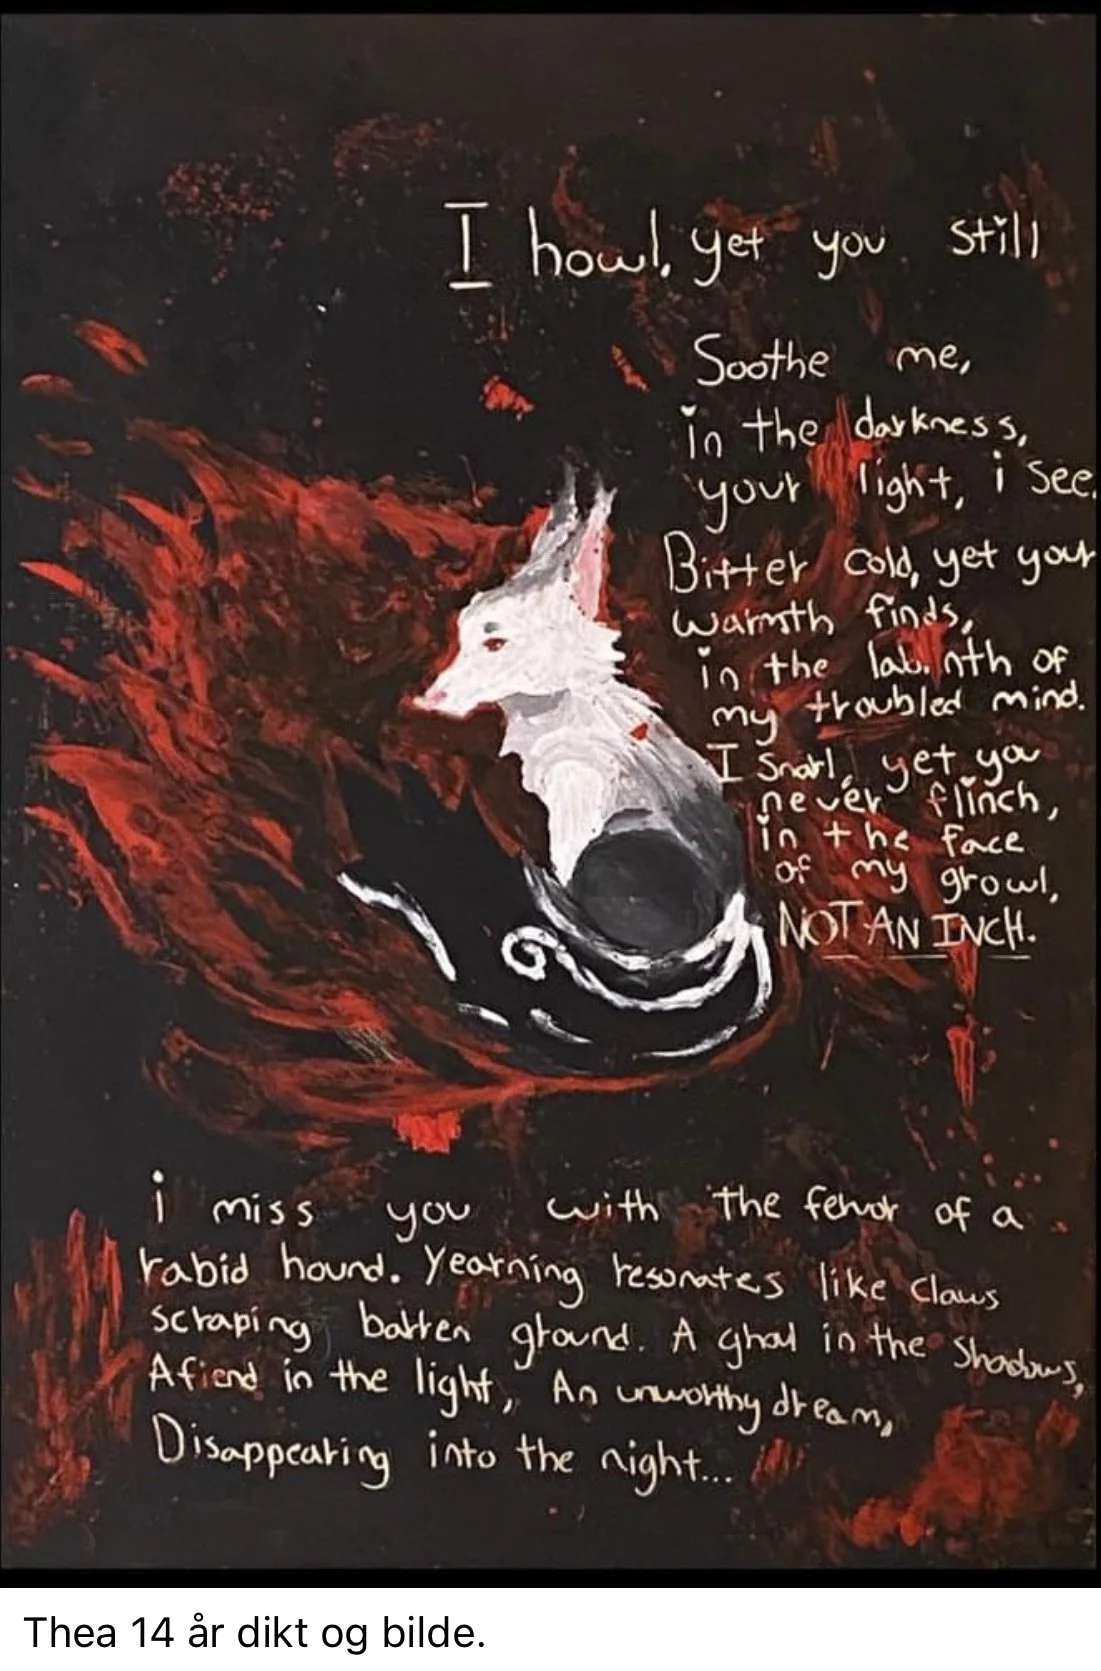 I howl, yet you still
Soothe me,
in the darkness,
your light, i see.
Bitter cold, yet your
warmth finds,
in the of
my troubled mind.
I snarl, yet you
never flinch,
in the face
of my growl,
NOT AN INCH.
i miss you with the fervor of a
rabid hound. Yearning resonates like claws
scraping barren ground. A in the shadows,
A fiend in the light, An unworthy dream,
Disappearing into the night...
Thea 14 år dikt og bilde.